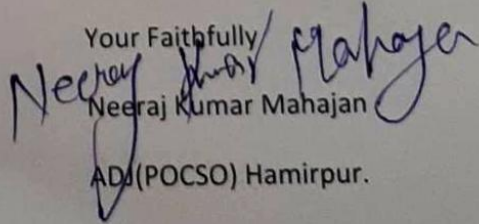 Your Faithfully
Neeraj Kumar Mahajan
Neeraj Kumar Mahajan
ADJ(POCSO) Hamirpur.